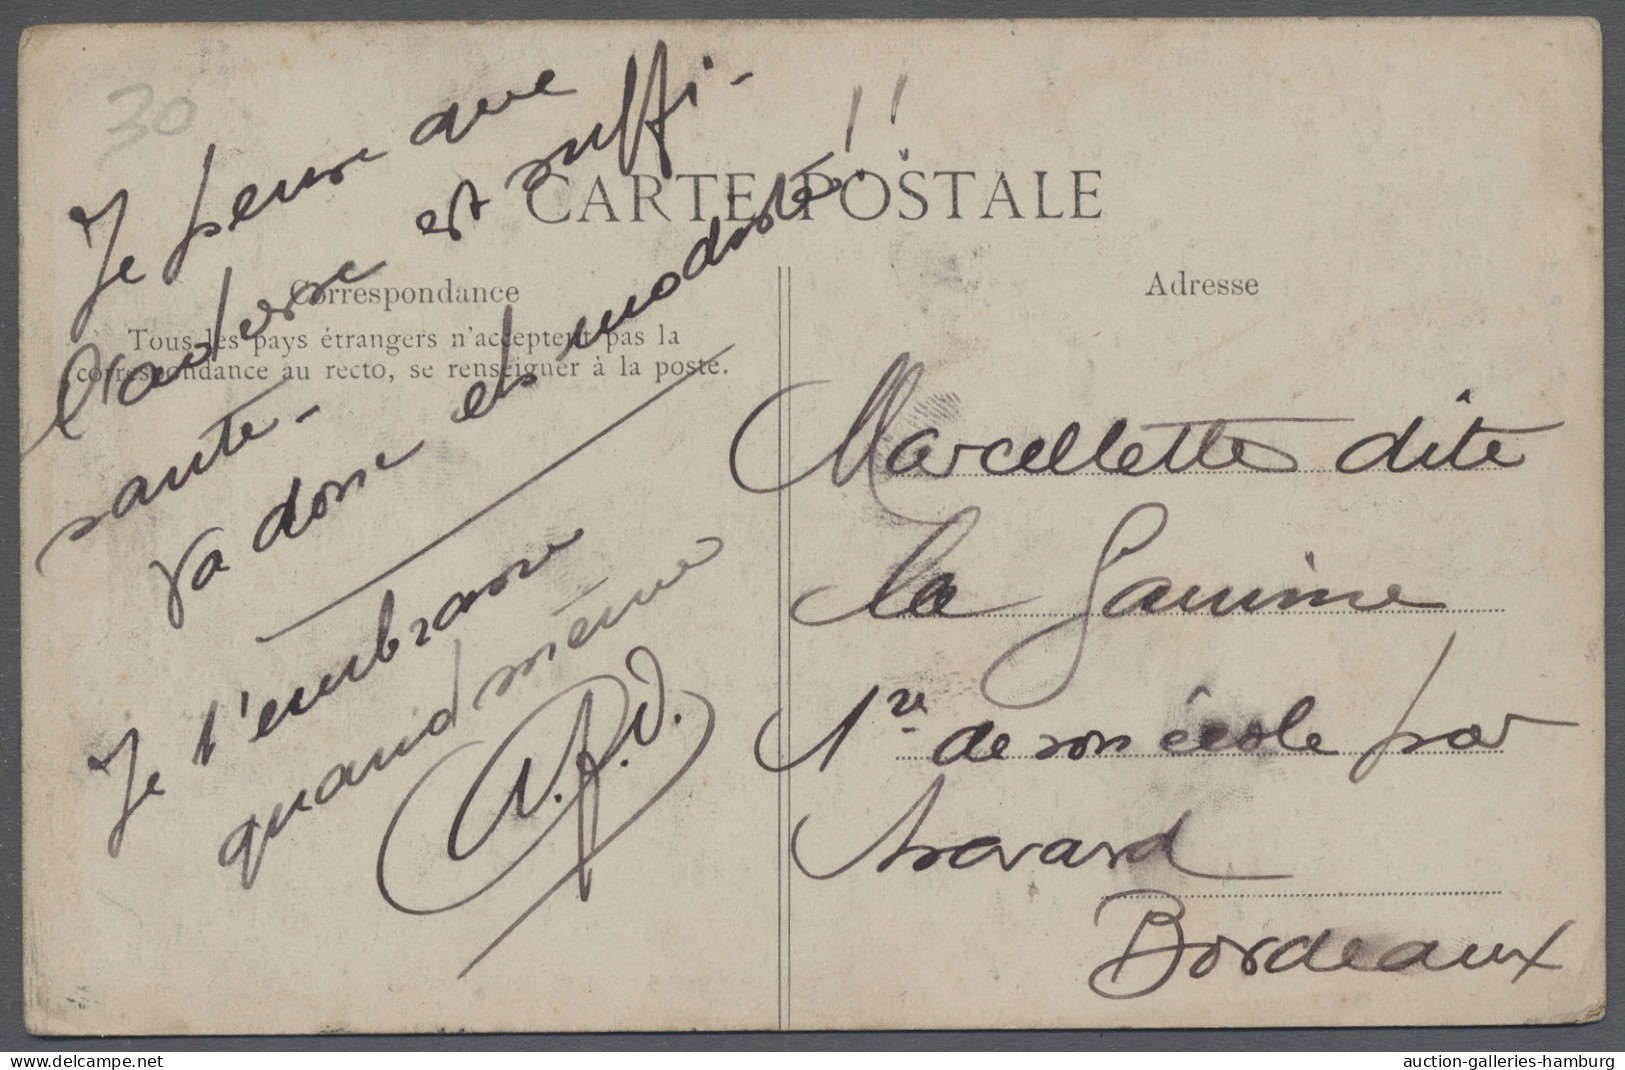 30
CARTE POSTALE
Correspondance
Tous les pays étrangers n'acceptent pas la
correspondance au recto, se renseigner à la poste.
Je pense que
l'adresse est suffi-
sante -
Va donc et modestie!!
Je t'embrasse
quand même
Adresse
Marcellette dite
la Gamine
1re de son école par
hasard
Bordeaux
www.delcampe.net
auction-galleries-hamburg